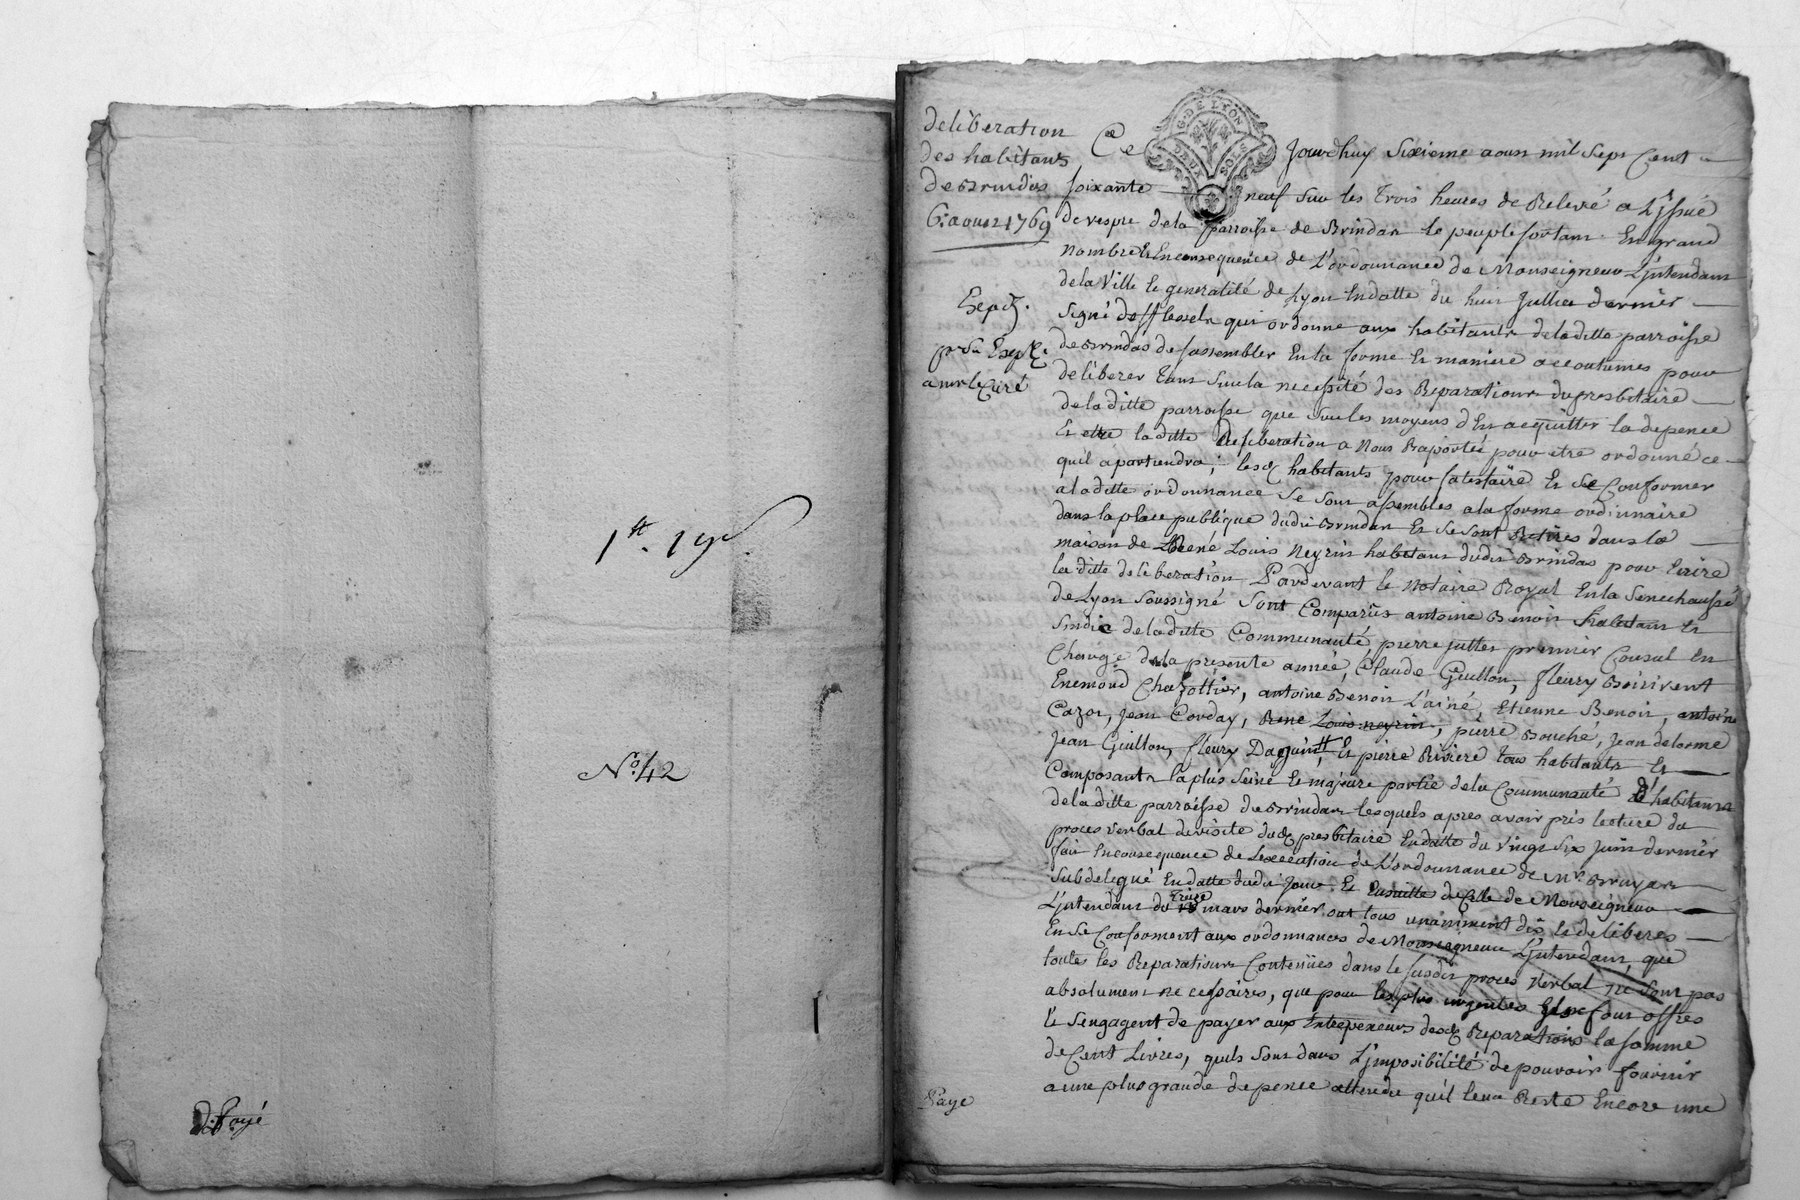 1ᵗᵗ. 19ˢ
Nº. 42
d. Payé
deliberation
des habitans
de Brindas
6. aoust 1769
Exped.
a mr le Curé
Paye
G. DE LYON
DEUX SOLS
Ce Jourd'huy Sixieme aoust mil Sept Cent
soixante neuf Sur les trois heures de Relevé a L'jssuë
de vespre de la parroisse de Brindas le peuple sortant En grand
nombre Et En consequence de L'ordonnance de Monseigneur L'jntendant
de la Ville Et generalité de Lyon En datte du huit Juillet dernier
Signé de fflesselles qui ordonne aux habitants de la ditte parroisse
de Brindas de sassembler En la forme Et maniere accoutumes pour
deliberer tant Sur la necessité des Reparations du presbitaire
de la ditte parroisse que Sur les moyens d'En acquitter la depence
Et etre la ditte deliberation a Nous Raportée pour être ordonné ce
qu'il apartiendra; lesd. habitants pour satisfaire Et Se Conformer
a la ditte ordonnance Se Sont assembles a la forme ordinnaire
dans la place publique dudit Brindas Et Se Sont Retires dans la
maison de René Louis Neyrin habitant dudit Brindas pour Ecrire
la ditte deliberation Pardevant le Notaire Royal En la Senechaussé
de Lyon Soussigné Sont Comparus antoine Benoit habitant Et
Sindic de la ditte Communauté, pierre Juttet premier Consul En
Charge de la presente année, Claude Guillon, fleury Boirivent
Enemond Chazottier, antoine Benoit L'ainé, Etienne Benoit, antoine
Cazot, Jean Corday, René Louis neyrin, pierre Bouché, Jean delorme
Jean Guillon, fleury Daguin, Et pierre Riviere tous habitants Et
Composant la plus Seine Et majeure partie de la Communauté d'habitans
de la ditte parroisse de Brindas lesquels apres avoir pris lecture du
proces verbal de visite dud. presbitaire En datte du Vingt Six Juin dernier
fait En consequence de L'execution de L'ordonnance de Mr. Bruyas
Subdelegué En datte dudit Jour Et Ensuitte de Celle de Monseigneur
L'jntendant du treize mars dernier ont tous unaniment dis Et deliberes
En Se Conformant aux ordonnances de Monseigneur L'jntendant, que
toutes les Reparations Contenües dans le susdit proces Verbal ne Sont pas
absolument necessaires, que pour les plus urgentes Ils se font offres
Et S'engagent de payer aux Entrepeneurs desd. Reparations la somme
de Cent Livres, quils Sont dans L'jmposibilité de pouvoir fournir
a une plus grande depence attendu qu'il leur Reste Encore une